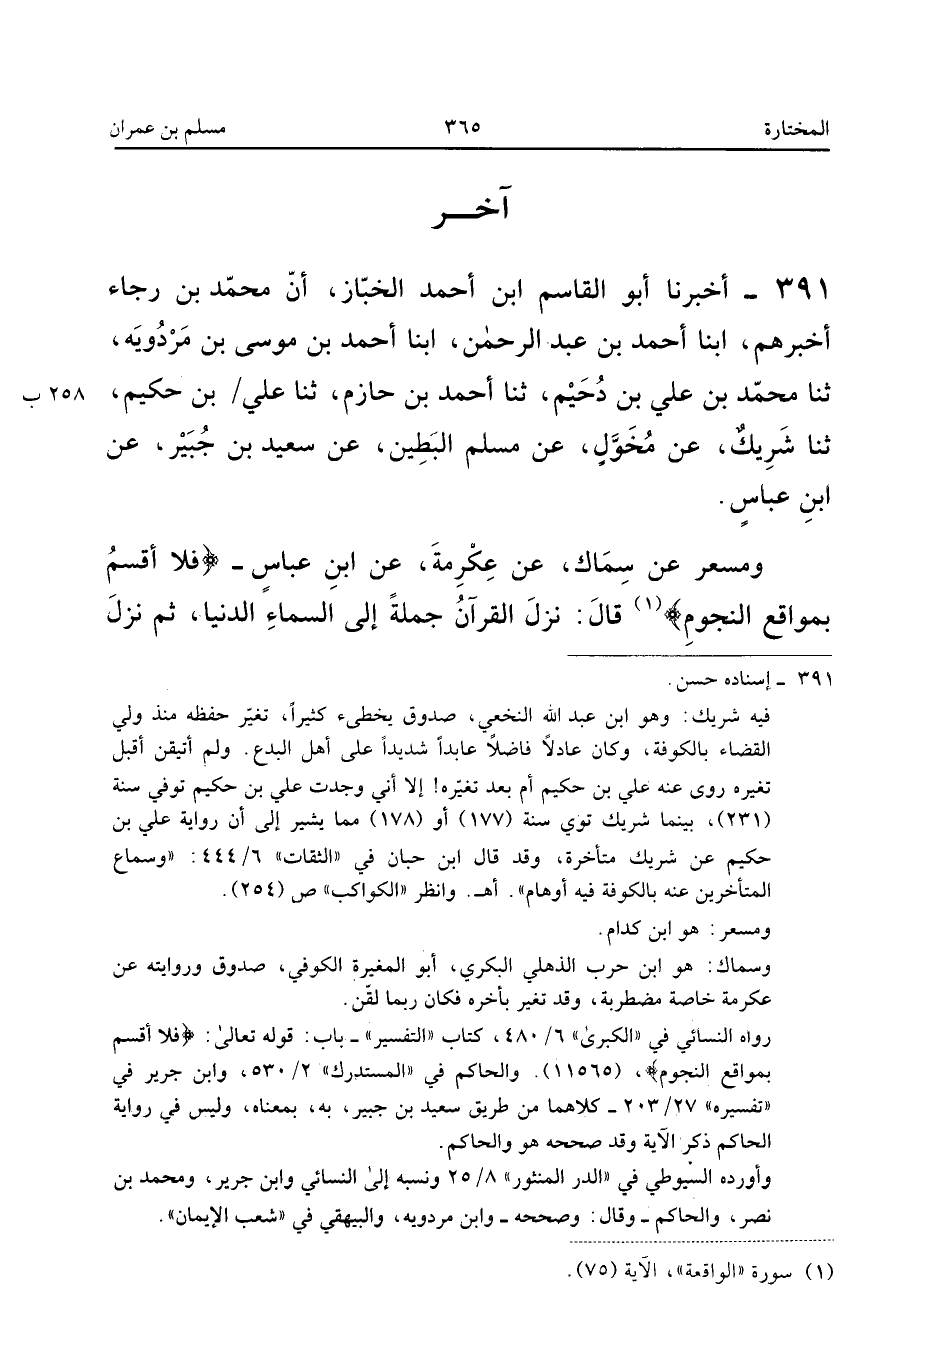 المختارة ٣٦٥ مسلم بن عمران
آخـــر
٣٩١ ـ أخبرنا أبو القاسم ابن أحمد الخبّاز، أنّ محمّد بن رجاء
أخبرهم، ابنا أحمد بن عبد الرحمٰن، ابنا أحمد بن موسى بن مَرْدُويَه،
ثنا محمّد بن علي بن دُحَيْم، ثنا أحمد بن حازم، ثنا علي/ بن حكيم، ٢٥٨ ب
ثنا شَرِيكٌ، عن مُخَوَّلٍ، عن مسلم البَطِين، عن سعيد بن جُبَيْر، عن
ابنِ عباسٍ.
ومسعر عن سِمَاك، عن عِكْرِمةَ، عن ابنِ عباسٍ ـ ﴿فلا أقسمُ
بمواقع النجومِ﴾(١) قالَ: نزلَ القرآنُ جملةً إلى السماءِ الدنيا، ثم نزلَ
٣٩١ ـ إسناده حسن.
فيه شريك: وهو ابن عبد الله النخعي، صدوق يخطىء كثيراً، تغيّر حفظه منذ ولي
القضاء بالكوفة، وكان عادلاً فاضلاً عابداً شديداً على أهل البدع. ولم أتيقن أقبل
تغيره روى عنه علي بن حكيم أم بعد تغيّره! إلا أني وجدت علي بن حكيم توفي سنة
(٢٣١)، بينما شريك توي سنة (١٧٧) أو (١٧٨) مما يشير إلى أن رواية علي بن
حكيم عن شريك متأخرة، وقد قال ابن حبان في «الثقات» ٤٤٤/٦: «وسماع
المتأخرين عنه بالكوفة فيه أوهام». أهـ. وانظر «الكواكب» ص (٢٥٤).
ومسعر: هو ابن كدام.
وسماك: هو ابن حرب الذهلي البكري، أبو المغيرة الكوفي، صدوق وروايته عن
عكرمة خاصة مضطربة، وقد تغير بأخره فكان ربما لقّن.
رواه النسائي في «الكبرىٰ» ٤٨٠/٦، كتاب «التفسير» ـ باب: قوله تعالىٰ: ﴿فلا أقسم
بمواقع النجوم﴾، (١١٥٦٥). والحاكم في «المستدرك» ٥٣٠/٢، وابن جرير في
«تفسيره» ٢٠٣/٢٧ ـ كلاهما من طريق سعيد بن جبير، به، بمعناه، وليس في رواية
الحاكم ذكر الآية وقد صححه هو والحاكم.
وأورده السيوطي في «الدر المنثور» ٢٥/٨ ونسبه إلىٰ النسائي وابن جرير، ومحمد بن
نصر، والحاكم ـ وقال: وصححه ـ وابن مردويه، والبيهقي في «شعب الإيمان».
(١) سورة «الواقعة»، الآية (٧٥).